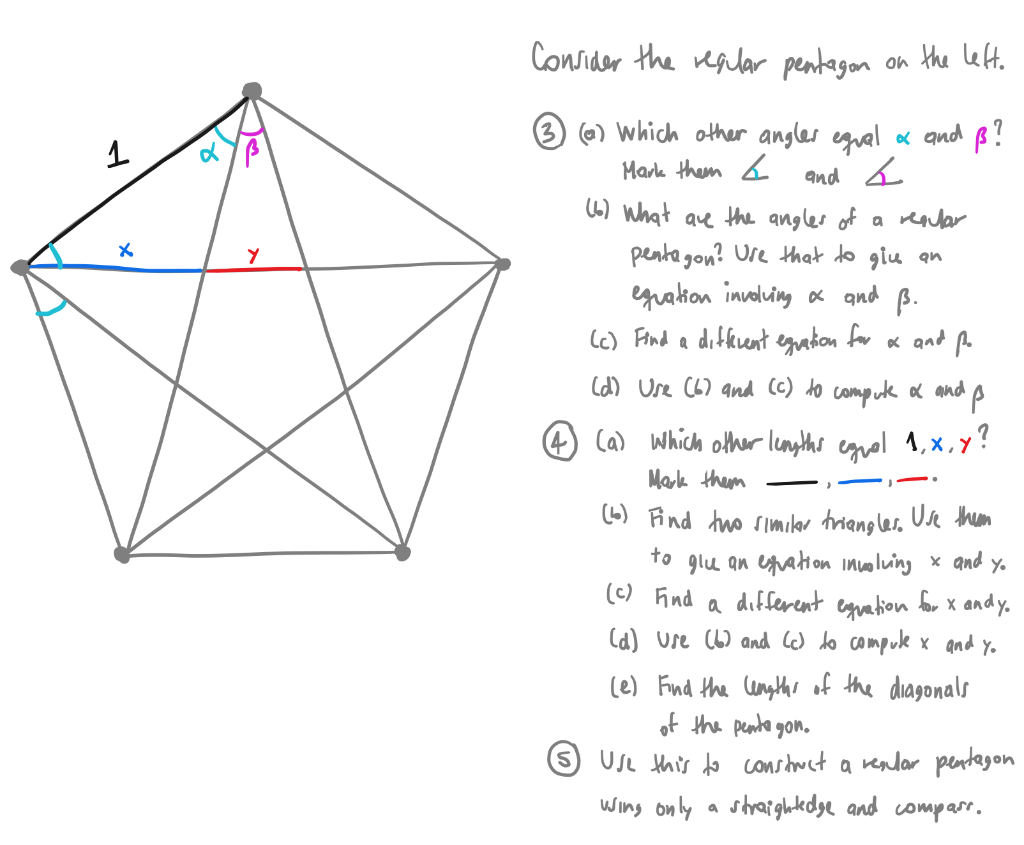 Consider the regular pentagon on the left.
1
α
β
x
y
③ (a) Which other angles equal α and β?
Mark them and
(b) What are the angles of a regular
pentagon? Use that to give an
equation involving α and β.
(c) Find a different equation for α and β.
(d) Use (b) and (c) to compute α and β
④ (a) Which other lengths equal 1, x, y?
Mark them , , .
(b) Find two similar triangles. Use them
to give an equation involving x and y.
(c) Find a different equation for x and y.
(d) Use (b) and (c) to compute x and y.
(e) Find the lengths of the diagonals
of the pentagon.
⑤ Use this to construct a regular pentagon
using only a straightedge and compass.